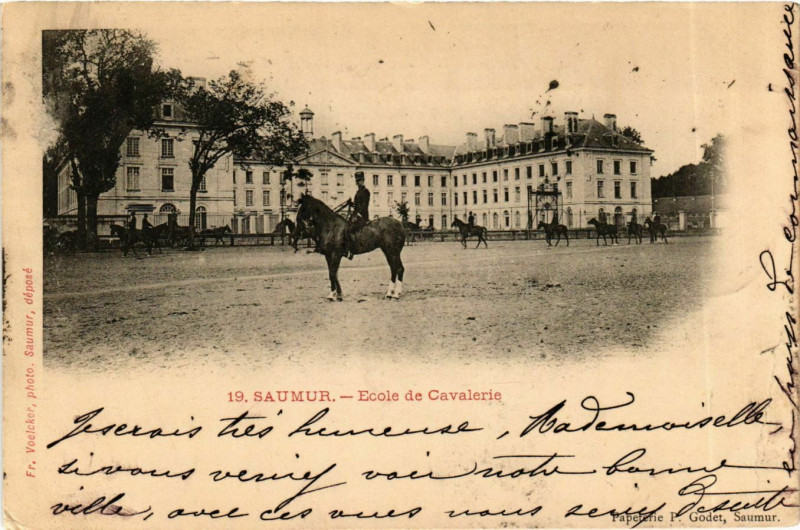 19. SAUMUR. — Ecole de Cavalerie
Fr. Voelcker, photo. Saumur, déposé
Je serais très heureuse, Mademoiselle,
si vous veniez voir notre bonne
ville, avec ces vues vous serez de suite
en pays de connaissance
Papeterie P. Godet, Saumur.